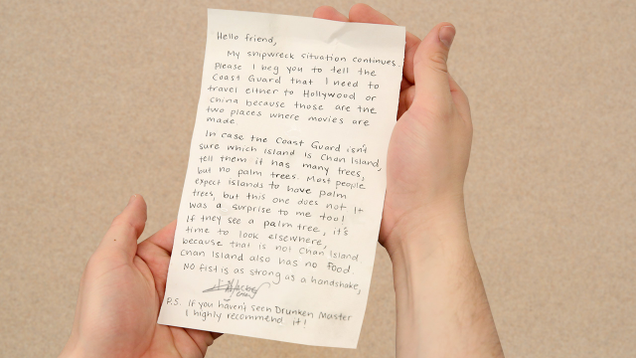 Hello friend,
My shipwreck situation continues.
Please I beg you to tell the
Coast Guard that I need to
travel either to Hollywood or
China because those are the
two places where movies are
made
In case the Coast Guard isn't
sure which island is Chan Island,
tell them it has many trees,
but no palm trees. Most people
expect islands to have palm
trees, but this one does not It
was a surprise to me too!
If they see a palm tree, it's
time to look elsewhere,
because that is not Chan Island
Chan Island also has no food.
No fist is as strong as a handshake,
P.S. If you haven't seen Drunken Master
I highly recommend it!